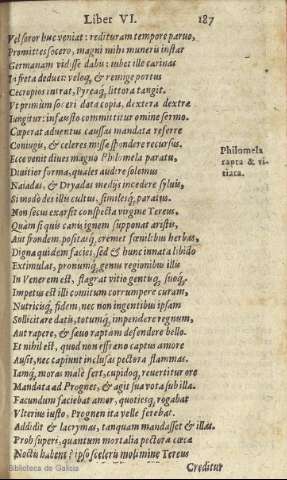 Liber VI. 187
Vel soror huc veniat: redituram tempore paruo,
Promittes socero, magni mihi muneris instar
Germanam vidisse dabis: iubet ille carinas
In freta deduci: veloq; & remige portus
Cecropios intrat, Pyræaq; littora tangit.
Vt primùm soceri data copia, dextera dextræ
Iungitur: infausto committitur omine sermo.
Cœperat aduentus caussas mandata referre
Coniugis, & celeres missæ spondere recursus.
Ecce venit diues magno Philomela paratu,
Diuitior forma, quales audire solemus
Naiadas, & Dryadas medijs incedere syluis,
Si modo des illis cultus, similesq; paratus.
Non secus exarsit conspecta virgine Tereus,
Quàm si quis canis ignem supponat aristis,
Aut frondem, positasq; cremet fœnilibus herbas,
Digna quidem facies, sed & hunc innata libido
Extimulat, pronumq; genus regionibus illis
In Venerem est, flagrat vitio gentisq; suoq;
Impetus est illi comitum corrumpere curam,
Nutricisq; fidem, nec non ingentibus ipsam
Sollicitare datis, totumq; impendere regnum,
Aut rapere, & sæuo raptam defendere bello.
Et nihil est, quod non effræno captus amore
Ausit, nec capiunt inclusas pectora flammas.
Iamq; moras malè fert, cupidoq; reuertitur ore
Mandata ad Prognes, & agit sua vota sub illa.
Facundum faciebat amor, quotiesq; rogabat
Vlterius iusto, Prognen ita velle ferebat.
Addidit & lacrymas, tanquam mandasset & illas.
Proh superi, quantum mortalia pectora cæca
Noctis habent? ipso sceleris molimine Tereus
Creditur
Philomela
rapta & vi-
tiata.
Biblioteca de Galicia